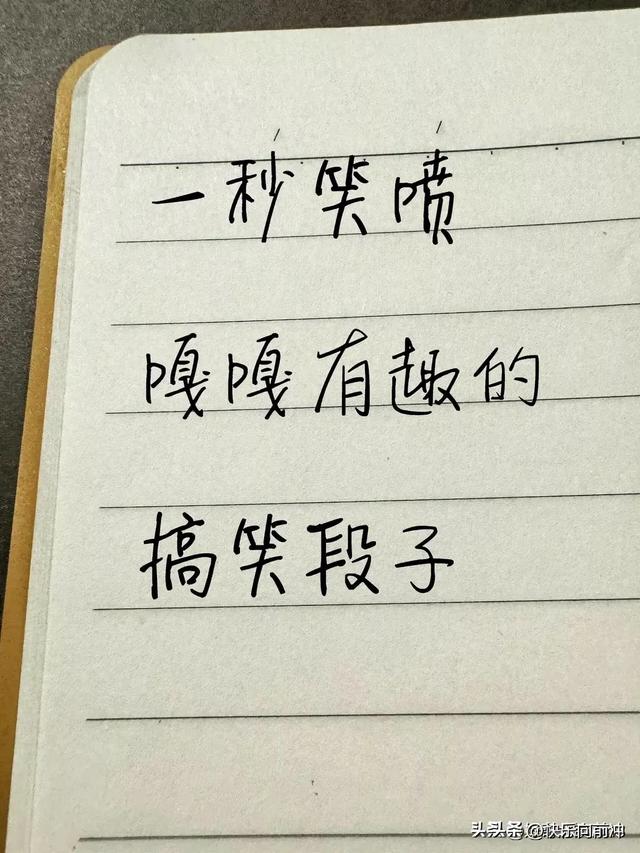 一秒笑喷
嘎嘎有趣的
搞笑段子
头条 @快乐向前冲